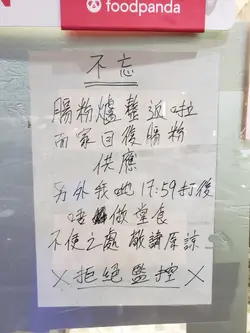 foodpanda
不忘
腸粉爐整返啦
而家回復腸粉
供應
另外我哋 17:59打後
唔做堂食
不便之處 敬請原諒
X 拒絕監控 X